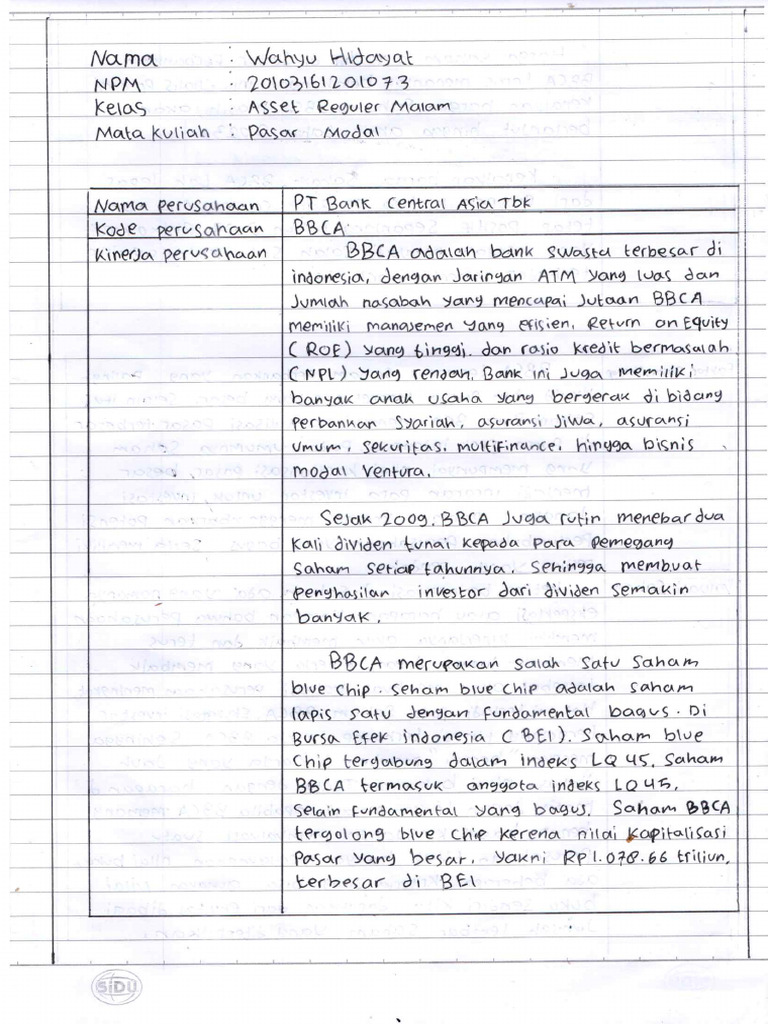 Nama : Wahyu Hidayat
NPM : 20103161201073
Kelas : Asset Reguler Malam
Mata Kuliah : Pasar Modal
Nama perusahaan PT Bank Central Asia Tbk
Kode perusahaan BBCA
Kinerja perusahaan BBCA adalah bank swasta terbesar di
indonesia, dengan Jaringan ATM yang luas dan
Jumlah nasabah yang mencapai Jutaan BBCA
memiliki manajemen yang efisien, Return on Equity
(ROE) yang tinggi, dan rasio kredit bermasalah
(NPL) yang rendah, Bank ini Juga memiliki
banyak anak usaha yang bergerak di bidang
perbankan Syariah, asuransi Jiwa, asuransi
umum, Sekuritas, multifinance, hingga bisnis
modal Ventura.
Sejak 2009, BBCA Juga rutin menebar dua
Kali dividen tunai kepada para pemegang
Saham setiap tahunnya. Sehingga membuat
penghasilan investor dari dividen Semakin
banyak.
BBCA merupakan Salah Satu Saham
blue chip. Seham blue chip adalah saham
lapis satu dengan fundamental bagus. Di
Bursa Efek indonesia (BEI). Saham blue
Chip tergabung dalam indeks LQ45, Saham
BBCA termasuk anggota indeks LQ45.
Selain fundamental yang bagus, Saham BBCA
tergolong blue Chip kerena nilai Kapitalisasi
Pasar yang besar, yakni Rp1.078.66 triliun,
terbesar di BEI
SiDU